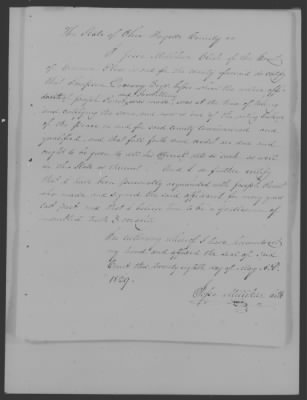 The State of Ohio County ss
I Clerk of the Court
of Common Pleas in and for the County aforesaid do certify
that Esqr before whom the within affi-
davit was made, was at the time of taking
and certifying the same, and now is one of the acting Justices
of the peace in and for said County Commissioned and
qualified, and that full faith and credit are due and
ought to be given to all his Official acts as such as well
in this State as thereout. And I do further certify
that I have been personally acquainted with Joseph
who made and signed the said affidavit for many years
last past and that I believe him to be a gentleman of
truth & veracity.
In testimony whereof I have hereunto set
my hand and affixed the seal of said
Court this twenty eighth day of May A.D.
1829.
Clk